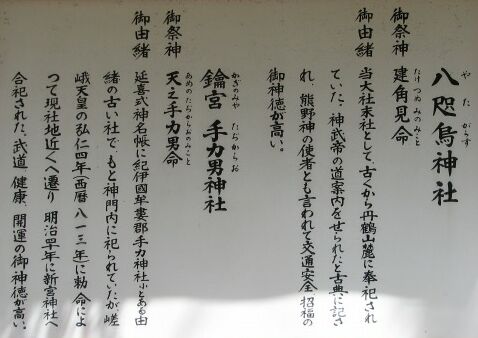 や た がらす
八咫烏神社
たけつぬみのみこと
御祭神 建角見命
御由緒 当大社末社として、古くから丹鶴山麓に奉祀され
ていた。神武帝の道案内をせられたと古典に記さ
れ、熊野神の使者とも言われて交通安全、招福の
御神徳が高い。
かぎのみや たぢからお
鑰宮 手力男神社
あめのたぢからおのみこと
御祭神 天之手力男命
御由緒 延喜式神名帳に紀伊國牟婁郡手力神社小とある由
緒の古い社で、もと神門内に祀られていたが嵯
峨天皇の弘仁四年(西暦 八一三年)に勅命によ
つて現社地近くへ遷り 明治四十年に新宮神社へ
合祀された。武道、健康、開運の御神徳が高い。